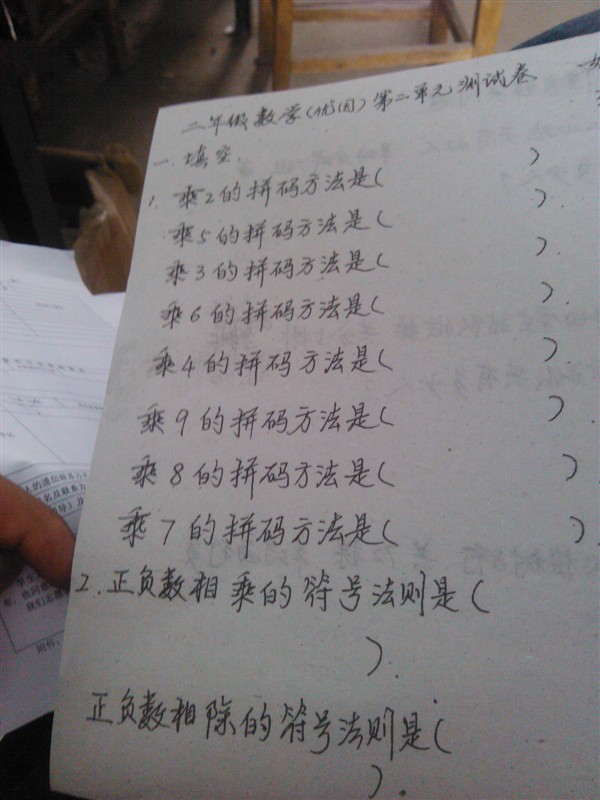 二年级数学(优因)第二单元测试卷
一.填空.
1.乘2的拼码方法是( )
乘5的拼码方法是( ).
乘3的拼码方法是( ).
乘6的拼码方法是( ).
乘4的拼码方法是( ).
乘9的拼码方法是( ).
乘8的拼码方法是( )
乘7的拼码方法是( ).
2.正负数相乘的符号法则是(
).
正负数相除的符号法则是(
).